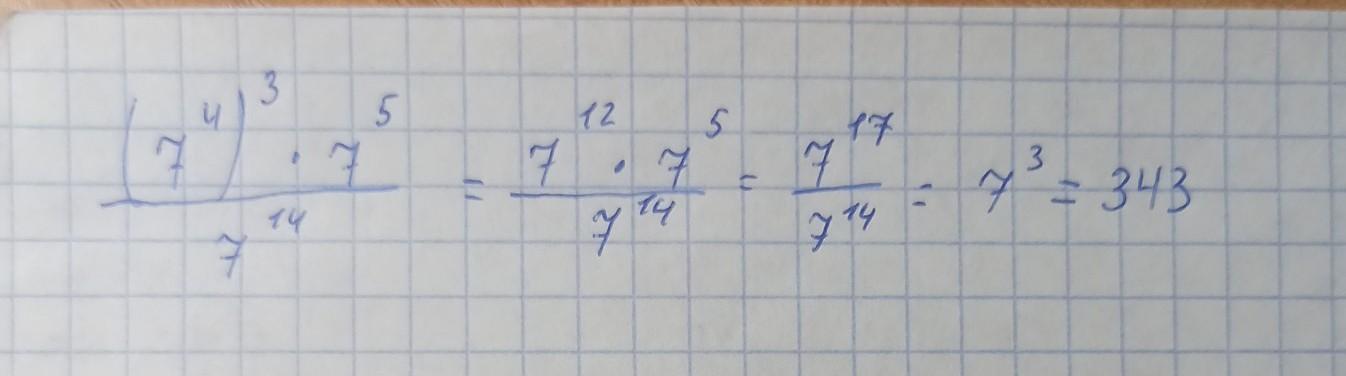 \frac{(7^4)^3 \cdot 7^5}{7^{14}} = \frac{7^{12} \cdot 7^5}{7^{14}} = \frac{7^{17}}{7^{14}} = 7^3 = 343